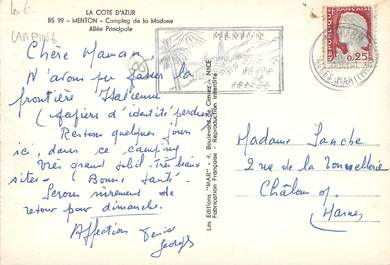 LA COTE D'AZUR
BS 99 - MENTON - Camping de la Madone
Allée Principale
CAMPING
Chère Maman
N'avons pu passer la
frontière Italienne
(papiers d'identité perdus)
Restons quelques jours
ici dans ce camping
très grand soleil - très beaux
sites - Bonne santé.
Serons sûrement de
retour pour dimanche.
Affection
Georges
Les Editions "MAR" - 4, Boulevard de Cimiez - NICE
Fabrication Française - Reproduction interdite
MENTON
FRANCE
REPUBLIQUE FRANÇAISE
0,25
Madame Lanche
2 rue de la Tonnellerie
Châlons s/
Marne